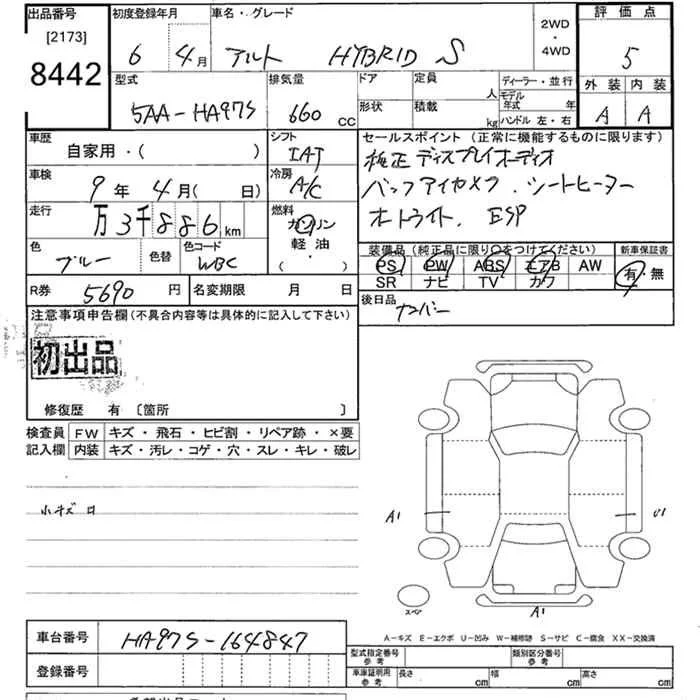 出品番号 初度登録年月 車名・グレード 2WD・4WD 評価点
[2173]
8442 6 4月 アルト HYBRID S 5
外装 内装
A A
型式 排気量 ドア 定員 人 ディーラー・並行
5AA-HA97S 660 cc 形状 積載 kg モデル年式 年
ハンドル 左・右
車歴 シフト セールスポイント (正常に機能するものに限ります)
自家用・( ) IAT 純正ディスプレイオーディオ
車検 冷房 バックアイカメラ.シートヒーター
9年 4月( 日) A/C オートライト. ESP
走行 燃料
万3千886km ガソリン
軽・油
・( )
色 色替 色コード
ブルー WBC
装備品(純正品に限り○をつけてください) 新車保証書
PS PW ABS エアB AW 有・無
SR ナビ TV カワ
R券 5690円 名変期限 月 日
後日品
ナンバー
注意事項申告欄(不具合内容等は具体的に記入して下さい)
初出品
修復歴 有 〔箇所 〕
検査員 FW キズ・飛石・ヒビ割・リペア跡・×要
記入欄 内装 キズ・汚レ・コゲ・穴・スレ・キレ・破レ
小キズ
A1
U1
A1
スペア
A-キズ E-エクボ U-凹み W-補修跡 S-サビ C-腐食 XX-交換済
車台番号 HA97S-164847
登録番号
型式指定番号 参考 類別区分番号 参考
車庫証明用 参考 長さ cm 幅 cm 高さ cm